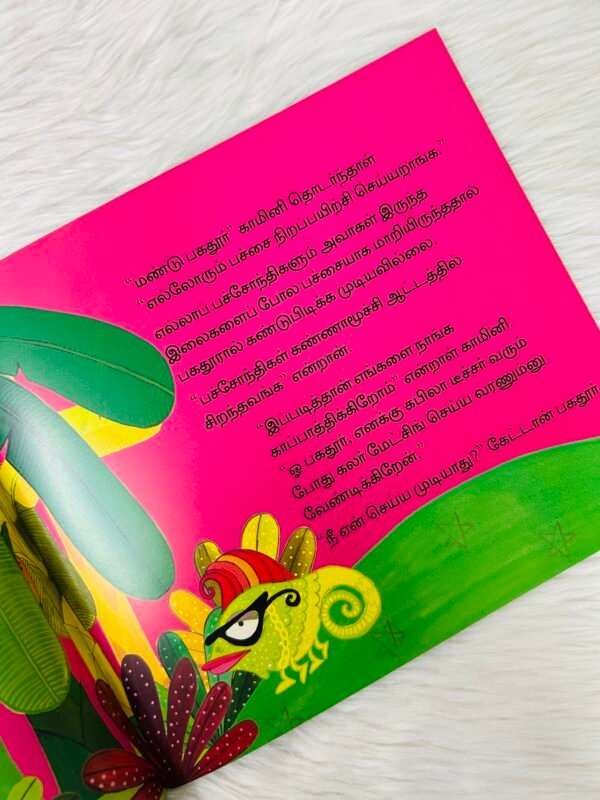 “மண்டு பகதூர்” காமினி தொடர்ந்தாள்
“எல்லோரும் பச்சை நிறப்பயிற்சி செய்யறாங்க.”
எல்லாப் பச்சோந்திகளும் அவர்கள் இருந்த
இலைகளைப் போல பச்சையாக மாறியிருந்ததால்
பகதூரால் கண்டுபிடிக்க முடியவில்லை.
“பச்சோந்திகள் கண்ணாமூச்சி ஆட்டத்தில்
சிறந்தவங்க” என்றான்.
“இப்படித்தான் எங்களை நாங்க
காப்பாத்திக்கிறோம்” என்றாள் காமினி.
“ஓ பகதூர், எனக்கு கபிலா டீச்சர் வரும்
போது கலர் மேட்சிங் செய்ய வரணும்னு
வேண்டிக்கிறேன்.”
“நீ ஏன் செய்ய முடியாது?” கேட்டான் பகதூர்